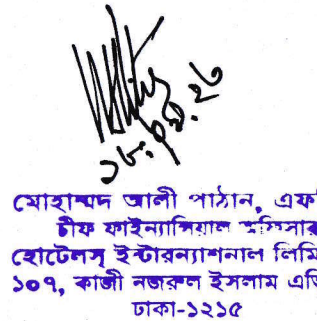 মোহাম্মদ আলী পাঠান, এফ
চীফ ফাইন্যান্সিয়াল অফিসার
হোটেলস্ ইন্টারন্যাশনাল লিমি
১০৭, কাজী নজরুল ইসলাম এভি
ঢাকা-১২১৫